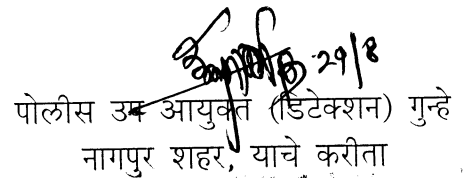 29/8
पोलीस उप आयुक्त (डिटेक्शन) गुन्हे
नागपुर शहर, याचे करीता